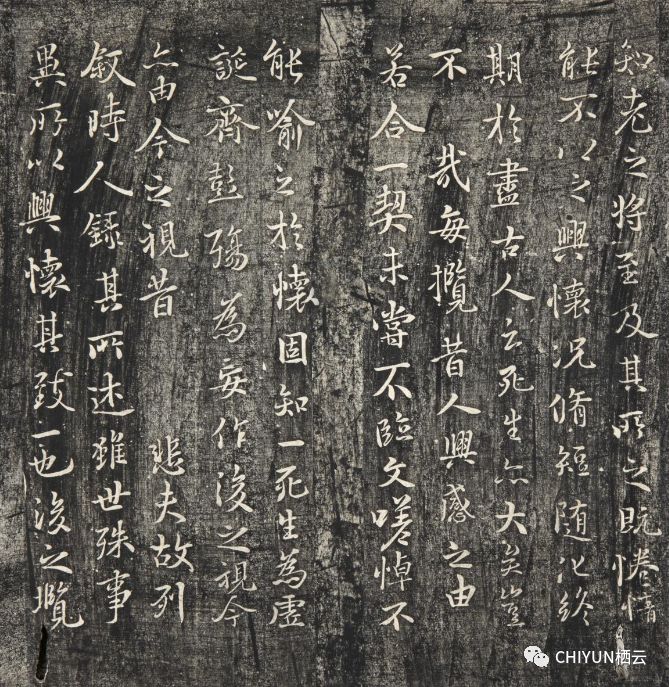 知老之將至及其所之既惓情
能不以之興懷況脩短隨化終
期於盡古人云死生亦大矣豈
不 哉每攬昔人興感之由
若合一契未嘗不臨文嗟悼不
能喻之於懷固知一死生為虛
誕齊彭殤為妄作後之視今
亦由今之視昔 悲夫故列
敘時人錄其所述雖世殊事
異所以興懷其致一也後之攬
CHIYUN栖云